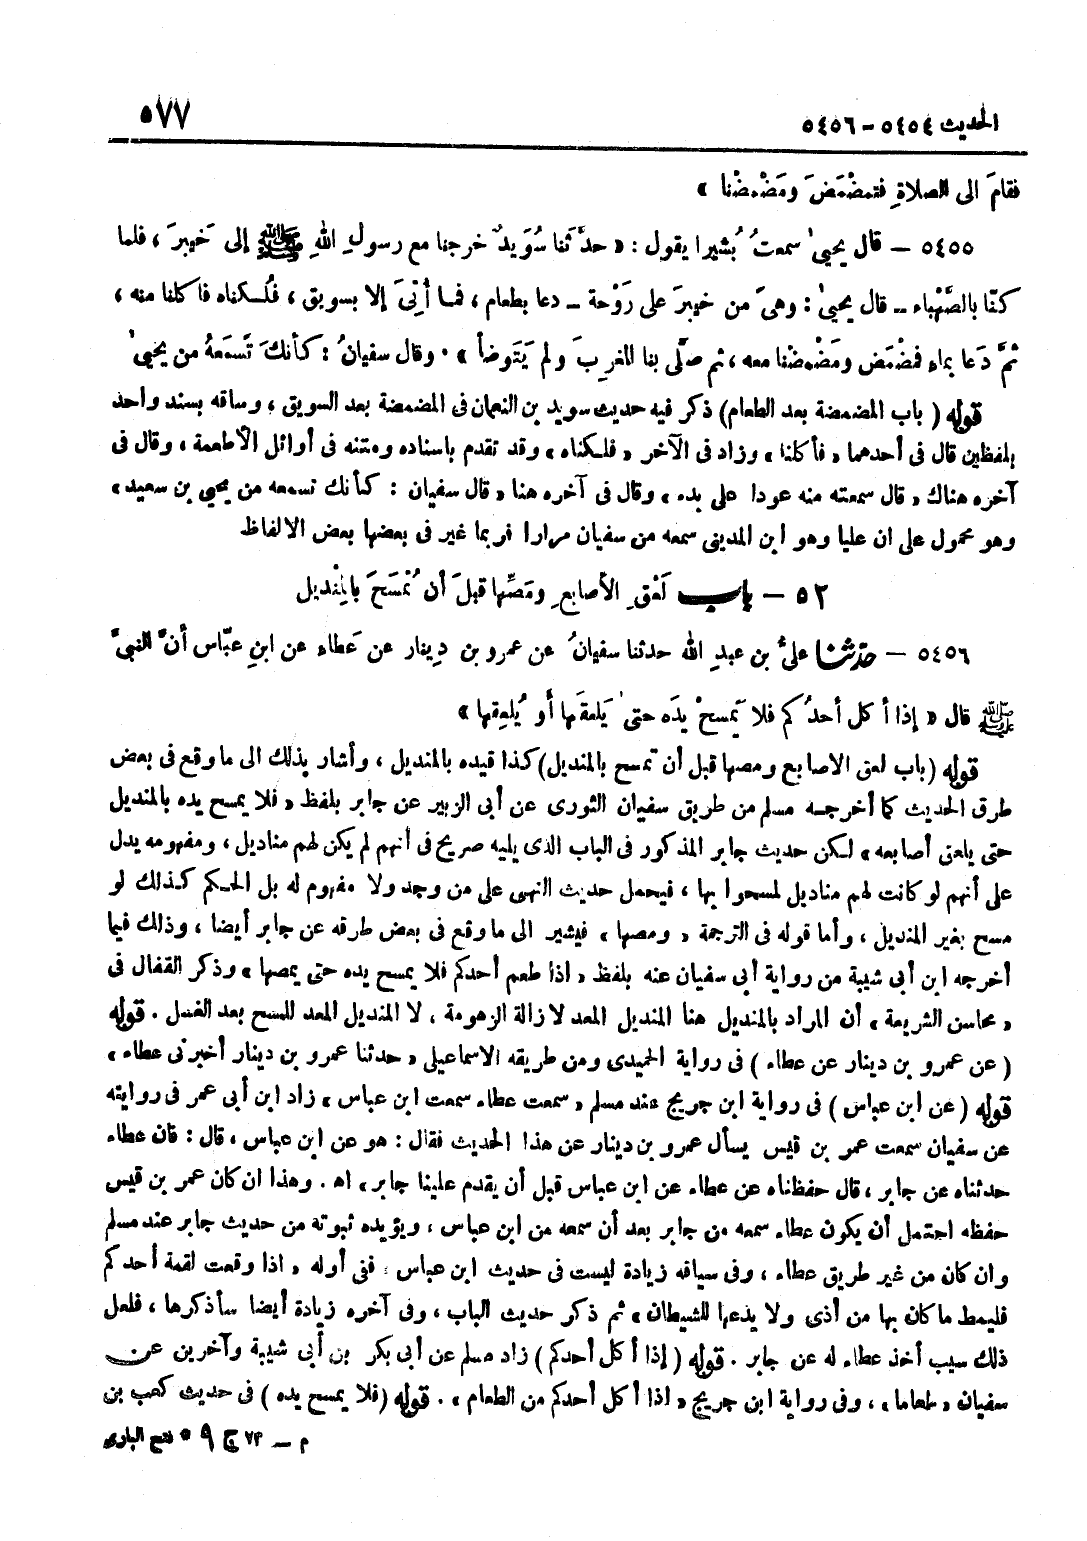 الحديث ٥٤٥٤ – ٥٤٥٦
٥٧٧
فقامَ الى الصلاةِ فتمضمَضَ ومَضْمضْنا »
٥٤٥٥ – قال يحيىٰ سمعتُ بُشيرا يقول : « حدَّثنا سُوَيدٌ خرجنا مع رسولِ اللهِ ﷺ إلى خَيبرَ ، فلما
كنّا بالصَّهباء – قال يحيىٰ : وهىَ من خيبرَ على رَوْحة – دعا بطعام ، فما أُتِىَ إلا بسويق ، فلُكناه فأكلنا منه ،
ثمَّ دَعا بماءٍ فمضْمَض ومَضْمضْنا معه ، ثم صلَّى بنا المغرِبَ ولم يَتَوضأ » . وقال سفيانُ : كأنكَ تَسمَعهُ من يحيىٰ
قوله ( باب المضمضة بعد الطعام ) ذكر فيه حديث سويد بن النعمان فى المضمضة بعد السويق ، وساقه بسند واحد
بلفظين قال فى أحدهما « فأكلنا » وزاد فى الآخر « فلكناه » وقد تقدم باسناده ومتنه فى أوائل الأطعمة ، وقال فى
آخره هناك « قال سمعته منه عودا على بدء » وقال فى آخره هنا « قال سفيان : كأنك تسمعه من يحيى بن سعيد »
وهو محمول على ان عليا وهو ابن المدينى سمعه من سفيان مرارا فربما غير فى بعضها بعض الالفاظ
٥٢ – باب لَعْقِ الأصابعِ ومَصِّها قبلَ أن تُمْسَحَ بالمِنْديل
٥٤٥٦ – حدثنا علىُّ بن عبدِ الله حدثنا سفيانُ عن عمرو بن دِينار عن عَطاء عن ابنِ عبّاس أنَّ النبىَّ
ﷺ قال « إذا أكل أحدُكم فلا يَمسحْ يدَه حتىٰ يَلعقَها أو يُلعِقها »
قوله ( باب لعق الاصابع ومصها قبل أن تمسح بالمنديل ) كذا قيده بالمنديل ، وأشار بذلك الى ما وقع فى بعض
طرق الحديث كما أخرجه مسلم من طريق سفيان الثورى عن أبى الزبير عن جابر بلفظ « فلا يمسح يده بالمنديل
حتى يلعق أصابعه » لكن حديث جابر المذكور فى الباب الذى يليه صريح فى أنهم لم يكن لهم مناديل ، ومفهومه يدل
على أنهم لو كانت لهم مناديل لمسحوا بها ، فيحمل حديث النهى على من وجد ولا مفهوم له بل الحكم كذلك لو
مسح بغير المنديل ، وأما قوله فى الترجمة « ومصها » فيشير الى ما وقع فى بعض طرقه عن جابر أيضا ، وذلك فيما
أخرجه ابن أبى شيبة من رواية أبى سفيان عنه بلفظ « اذا طعم أحدكم فلا يمسح يده حتى يمصها » وذكر القفال فى
« محاسن الشريعة » أن المراد بالمنديل هنا المنديل المعد لازالة الزهومة ، لا المنديل المعد للمسح بعد الغسل . قوله
( عن عمرو بن دينار عن عطاء ) فى رواية الحميدى ومن طريقه الاسماعيلى « حدثنا عمرو بن دينار أخبرنى عطاء »
قوله ( عن ابن عباس ) فى رواية ابن جريج عند مسلم « سمعت عطاء سمعت ابن عباس » زاد ابن أبى عمر فى روايته
عن سفيان سمعت عمر بن قيس يسأل عمرو بن دينار عن هذا الحديث فقال : هو عن ابن عباس ، قال : فان عطاء
حدثناه عن جابر ، قال حفظناه عن عطاء عن ابن عباس قبل أن يقدم علينا جابر » اه . وهذا ان كان عمر بن قيس
حفظه احتمل أن يكون عطاء سمعه من جابر بعد أن سمعه من ابن عباس ، ويؤيده ثبوته من حديث جابر عند مسلم
وان كان من غير طريق عطاء ، وفى سياقه زيادة ليست فى حديث ابن عباس ، ففى أوله « اذا وقعت لقمة أحدكم
فليمط ما كان بها من أذى ولا يدعها للشيطان » ثم ذكر حديث الباب ، وفى آخره زيادة أيضا سأذكرها ، فلعل
ذلك سبب أخذ عطاء له عن جابر . قوله ( إذا أكل أحدكم ) زاد مسلم عن أبى بكر بن أبى شيبة وآخرين عن
سفيان « طعاما » ، وفى رواية ابن جريج « اذا أكل أحدكم من الطعام » . قوله ( فلا يمسح يده ) فى حديث كعب بن
م – ٧٣ ج ٩ * فتح البارى